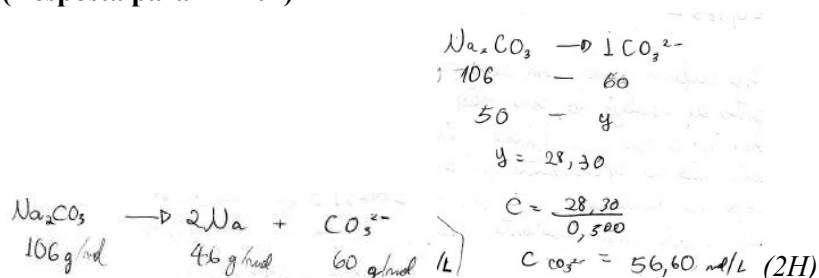 Na₂CO₃ → 1 CO₃²⁻
106 – 60
50 – y
y = 28,30
C = 28,30 / 0,500
C CO₃²⁻ = 56,60 mol/L (2H)
Na₂CO₃ → 2Na + CO₃²⁻
106 g/mol 46 g/mol 60 g/mol /L